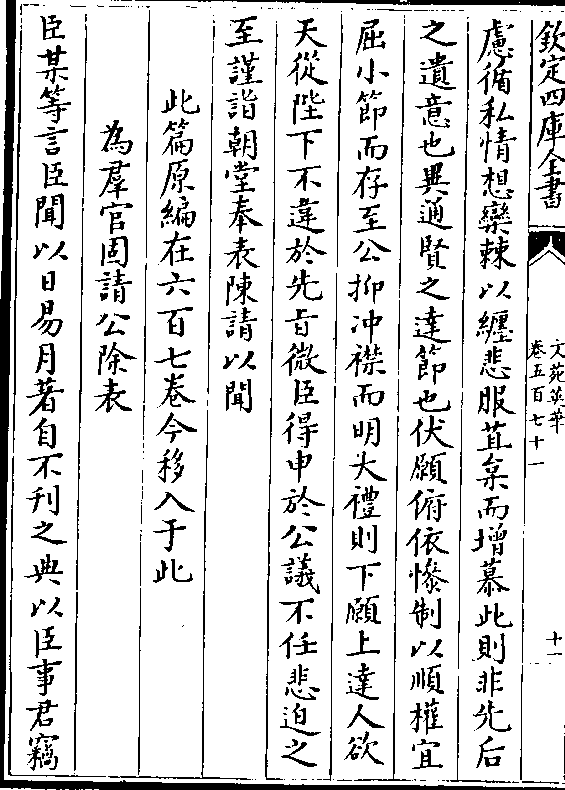 欽定四庫全書
文苑英華
卷五百七十一
十一
慮循私情想欒棘以纏悲服苴枲而增慕此則非先后
之遺意也異通賢之達節也伏願俯依慘制以順權宜
屈小節而存至公抑冲襟而明大禮則下願上達人欲
天從陛下不違於先旨微臣得申於公議不任悲迫之
至謹詣朝堂奉表陳請以聞
此篇原編在六百七卷今移入于此
為羣官固請公除表
臣某等言臣聞以日易月著自不刊之典以臣事君竊